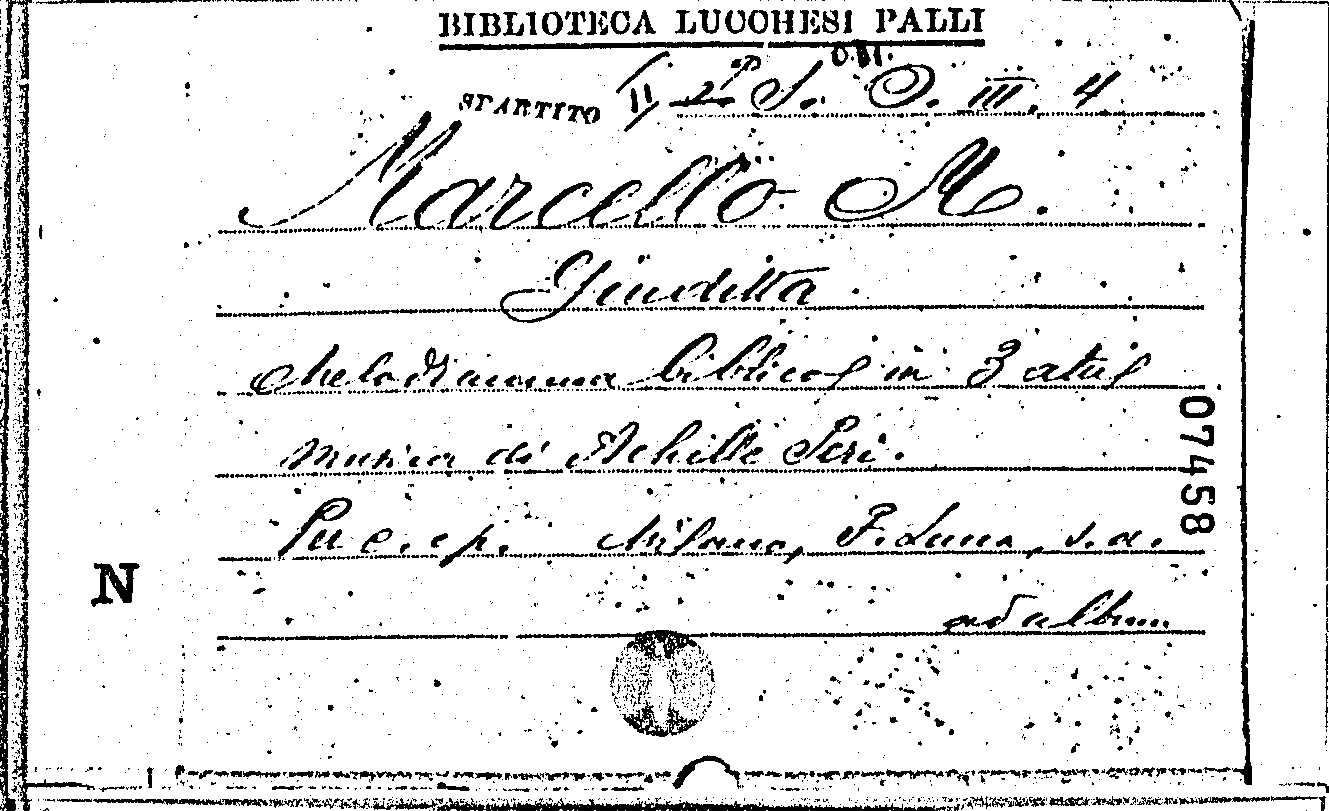 BIBLIOTECA LUCCHESI PALLI
SPARTITO II 2ª S. O. III. 4
Marcello M.
Giuditta.
Melodramma biblico in 3 atti
musica di Achille Peri.
Per c. e p. Milano, F. Lucca, s.a.
ad album
07458
N